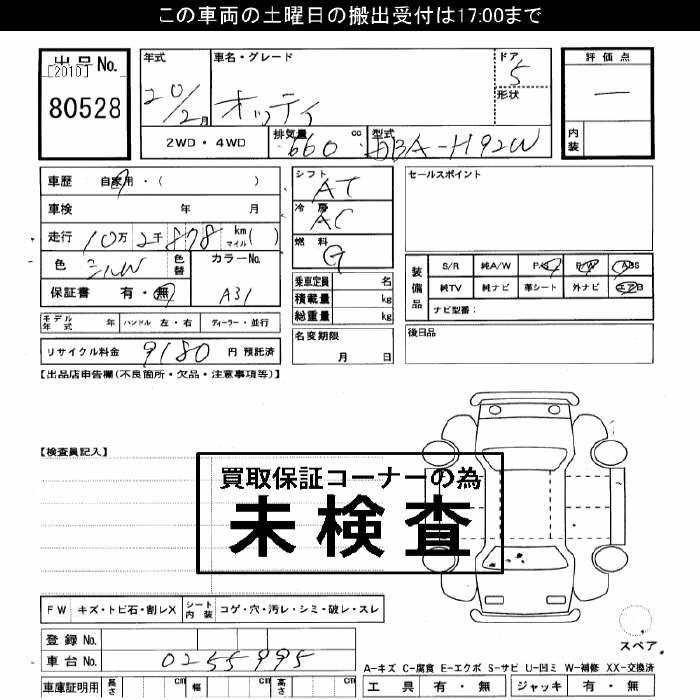 この車両の土曜日の搬出受付は17:00まで
出品No.
[2010]
80528
年式
20/2月
車名・グレード
オッティ
ドア
5
形状
評価点
―
内装
2WD・4WD
排気量
660 cc
型式
DBA-H92W
車歴 自家用・( )
車検 年 月
走行 10万2千878 km マイル ( )
色 シルバ
色替
カラーNo.
A31
保証書 有・無
モデル年式 年 ハンドル 左・右 ディーラー・並行
リサイクル料金 9180 円 預託済
シフト
AT
冷房
AC
燃料
G
乗車定員 名
積載量 kg
総重量 kg
名変期限
月 日
セールスポイント
装備品
S/R 純A/W P/S P/W ABS
純TV 純ナビ 革シート 外ナビ エアB
ナビ型番:
後日品
【出品店申告欄(不良箇所・欠品・注意事項等)】
【検査員記入】
買取保証コーナーの為
未検査
FW キズ・トビ石・割レX シート内装 コゲ・穴・汚レ・シミ・破レ・スレ
登録No.
車台No. 0255995
車庫証明用 長さ cm 幅 cm 高さ cm
スペア
A-キズ C-腐食 E-エクボ S-サビ U-凹ミ W-補修 XX-交換済
工具 有・無 ジャッキ 有・無